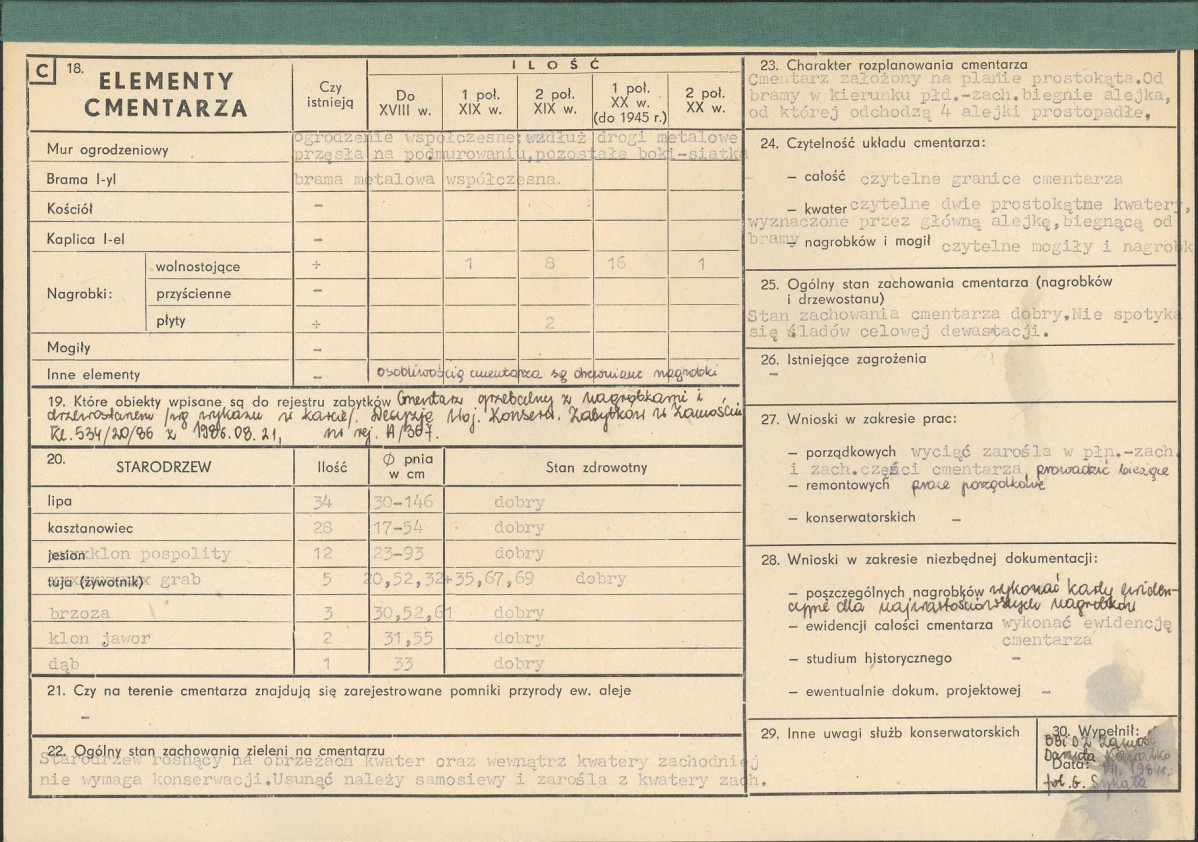 C 18. ELEMENTY CMENTARZA
Czy istnieją
ILOŚĆ
Do XVIII w.
1 poł. XIX w.
2 poł. XIX w.
1 poł. XX w. (do 1945 r.)
2 poł. XX w.
Mur ogrodzeniowy ogrodzenie współczesne:wzdłuż drogi metalowe
przęsła na podmurowaniu,pozostałe boki-siatka
Brama I-yl brama metalowa współczesna.
Kościół -
Kaplica I-el -
Nagrobki:
wolnostojące + 1 8 16 1
przyścienne -
płyty + 2
Mogiły -
Inne elementy - osobliwością cmentarza są drewniane nagrobki
19. Które obiekty wpisane są do rejestru zabytków Cmentarz grzebalny z nagrobkami i
drzewostanem /wg wykazu w karcie/. Decyzja Woj. Konserw. Zabytków w Zamościu
Kl.534/20/86 z 1986.08.21, nr rej. A/367.
20. STARODRZEW Ilość Ø pnia w cm Stan zdrowotny
lipa 34 30-146 dobry
kasztanowiec 28 17-54 dobry
jesion klon pospolity 12 23-93 dobry
tuja (żywotnik) grab 5 20,52,32+35,67,69 dobry
brzoza 3 30,52,61 dobry
klon jawor 2 31,55 dobry
dąb 1 33 dobry
21. Czy na terenie cmentarza znajdują się zarejestrowane pomniki przyrody ew. aleje
-
22. Ogólny stan zachowania zieleni na cmentarzu
Starodrzew rosnący na obrzeżach kwater oraz wewnątrz kwatery zachodniej
nie wymaga konserwacji.Usunąć należy samosiewy i zarośla z kwatery zach.
23. Charakter rozplanowania cmentarza
Cmentarz założony na planie prostokąta.Od
bramy w kierunku płd.-zach.biegnie alejka,
od której odchodzą 4 alejki prostopadłe,
24. Czytelność układu cmentarza:
— całość czytelne granice cmentarza
— kwater czytelne dwie prostokątne kwatery,
wyznaczone przez główną alejkę,biegnącą od
bramy
— nagrobków i mogił czytelne mogiły i nagrobk
25. Ogólny stan zachowania cmentarza (nagrobków
i drzewostanu)
Stan zachowania cmentarza dobry.Nie spotyka
się śladów celowej dewastacji.
26. Istniejące zagrożenia
-
27. Wnioski w zakresie prac:
— porządkowych wyciąć zarośla w płn.-zach.
i zach.części cmentarza, prowadzić bieżące
— remontowych prace porządkowe
— konserwatorskich -
28. Wnioski w zakresie niezbędnej dokumentacji:
— poszczególnych nagrobków wykonać karty ewiden-
cyjne dla najwartościowszych nagrobków
— ewidencji całości cmentarza wykonać ewidencję
cmentarza
— studium historycznego -
— ewentualnie dokum. projektowej -
29. Inne uwagi służb konserwatorskich
30. Wypełnił:
BBiDZ Zamość
Danuta
Data: VII. 1984r.
fot. G.